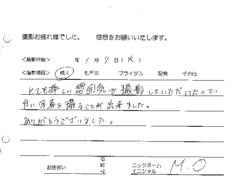 撮影お疲れ様でした。 感想をお願いいたします。
<撮影月日> 年 1月7日(火)
<撮影項目> 成人 七五三 ブライダル 記念 その他
とても楽しい雰囲気で撮影していただけたので
良い写真を撮ることが出来ました。
ありがとうございました。
お住まい 市 町 村 ニックネーム イニシャル M.O